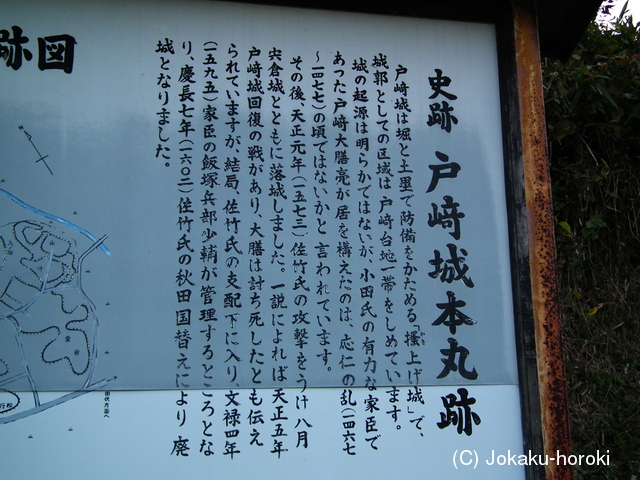 史跡 戸﨑城本丸跡
戸﨑城は堀と土里で防備をかためる「搔上げ城」で、
城郭としての区域は 戸﨑台地一帯をしめています。
城の起源は明らかではないが、小田氏の有力な家臣で
あった戸﨑大膳亮が居を構えたのは、応仁の乱(一四六七
〜一四七七)の頃ではないかと 言われています。
その後、天正元年(一五七三)佐竹氏の攻撃をうけ八月
宍倉城とともに落城しました。一説によれば 天正五年
戸﨑城回復の戦があり、大膳は討ち死したとも伝え
られていますが、結局、佐竹氏の支配下に入り、文禄四年
(一五九五)家臣の飯塚兵部少輔が管理するところとな
り、慶長七年(一六〇二)佐竹氏の秋田国替えにより 廃
城となりました。
跡図
(C) Jokaku-horoki